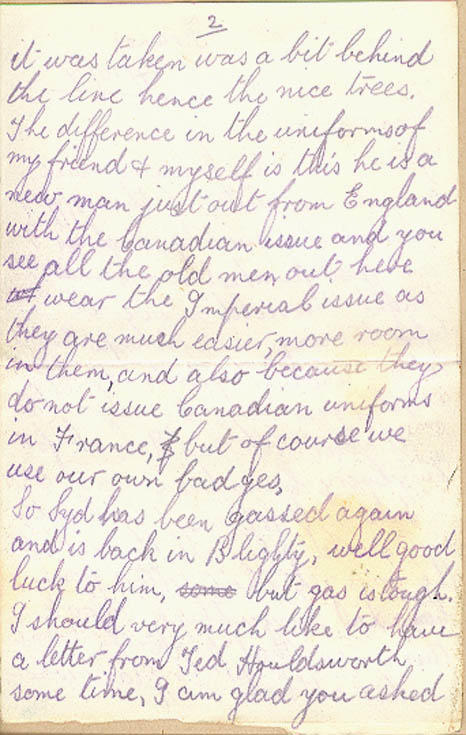 2
it was taken was a bit behind
the line hence the nice trees.
The difference in the uniforms of
my friend & myself is this he is a
new man just out from England
with the Canadian issue and you
see all the old men out here
wear the Imperial issue as
they are much easier, more room
in them, and also because they
do not issue Canadian uniforms
in France, but of course we
use our own badges,
So Syd has been gassed again
and is back in Blighty, well good
luck to him, some but gas is tough.
I should very much like to have
a letter from Ted Houldsworth
some time, I am glad you asked